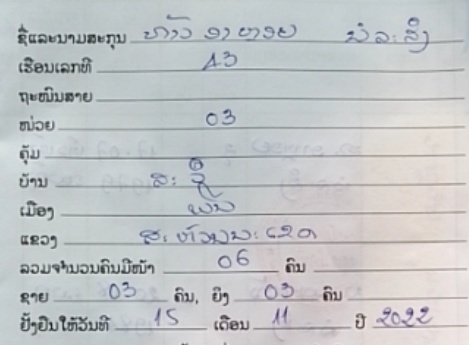 ຊື່ແລະນາມສະກຸນ ທ້າວ
ເຮືອນເລກທີ A3
ຖະໜົນສາຍ
ໜ່ວຍ 03
ຄຸ້ມ
ບ້ານ
ເມືອງ ພິນ
ແຂວງ ສະຫວັນນະເຂດ
ລວມຈຳນວນຄົນມີໜ້າ 06 ຄົນ
ຊາຍ 03 ຄົນ, ຍິງ 03 ຄົນ
ຢັ້ງຢືນໃຫ້ວັນທີ 15 ເດືອນ 11 ປີ 2022